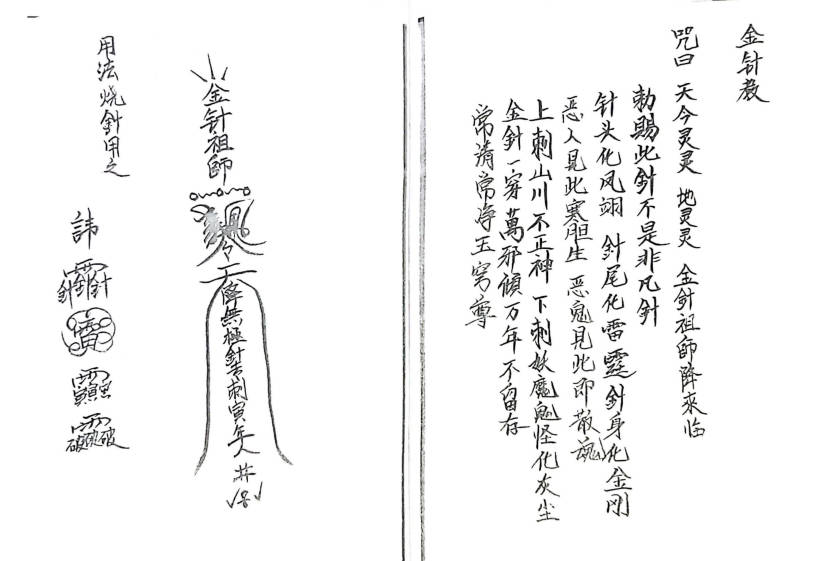 金针教
咒曰 天今灵灵 地灵灵 金針祖師降來临
勅賜此針不是非凡針
针头化凤翊 針尾化雷霆 針身化金剛
恶人見此寒胆生 恶鬼見此即散魂
上刺山川不正神 下刺妖魔鬼怪化灰尘
金針一穿萬邪傾 万年不留存
常清常净玉穹尊
金针祖師
天降無極針
刺寅年人
用法烧針用之
諱